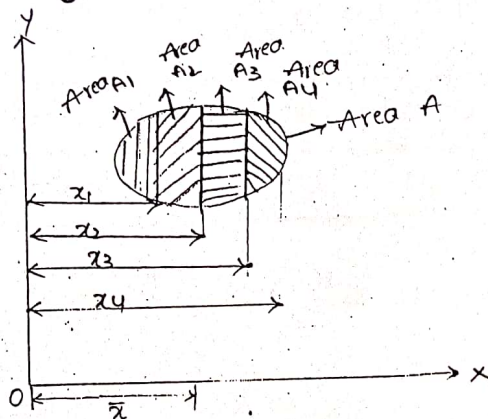 Y
Area A1
Area A2
Area A3
Area A4
Area A
x1
x2
x3
x4
O
x̄
X